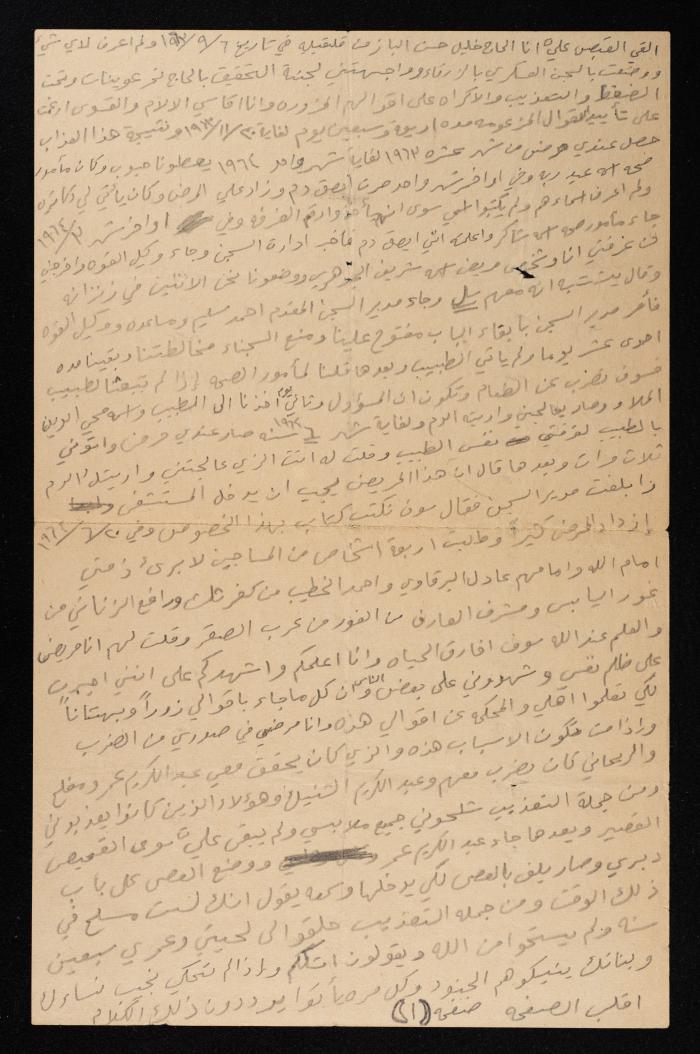 القي القبض علي انا الحاج خليل حسن الباز من قلقيليه في تاريخ ٦/ ٩/ ١٩٦٣ ولم اعرف لاي شيء
ووضعت بالسجن العسكري بالزرقاء وواجهتني لجنة التحقيق بالحاج نمر عوينات وتحت
الضغط والتعذيب والاكراه على اقوالهم المزوره وانا اقاسي الالام والقسوى ارغمت
على تأييد اقوال المزعومه مده اربعة وسبعين يوم لغاية ٢٠/ ١١/ ١٩٦٣ ونتيجة هذا العذاب
حصل عندي مرض من شهر عشره ١٩٦٣ لغاية شهر واحد ١٩٦٤ يعطونا حبوب وكان مأمور
صحه اسمه عبد ربه وفي اواخر شهر واحد صرت ابصق دم وزاد علي المرض وكان يأتي لي دكاتره
ولم اعرف اسماءهم ولم يكتبوا اسمي سوى رقم الغرفه وفي اواخر شهر ٣/ ١٩٦٤
جاء مأمور صحه اسمه شاكر واعلمته اني ابصق دم فأخبر ادارة السجن وجاء وكيل القوه واخرجني
من غرفتي انا وشخص مريض اسمه شريف ووضعونا نحن الاثنين في زنزانه
وقال يشتبه انه معهم سل وجاء مدير السجن المقدم احمد سليم ومساعده ووكيل القوه
فأمر مدير السجن بابقاء الباب مفتوح علينا ومنع السجناء مخالطتنا وبقينا مده
احدى عشر يوما ولم ياتي الطبيب وبعدها قلنا لمأمور الصحه اذا لم تبعثنا لطبيب
فسوف نضرب عن الطعام وتكون ان المسؤول وثاني يوم اخذنا الى الطبيب واسمه محي الدين
الملا وصار يعالجني واريته الدم ولغاية شهر ٦ سنه ١٩٦٤ صار عندي مرض واتوني
بالطبيب لغرفتي نفس الطبيب وقلت له انت الذي عالجتني واريتك الدم
ثلاث مرات وبعدها قال ان هذا المريض يجب ان يدخل المستشفى
واذا بلغت مدير السجن فقال سوف نكتب كتاب بهذا الخصوص وفي ٢٠/ ٦/ ١٩٦٤
إزداد المرض كثيرا وطالبت اربعة اشخاص من المساجين لابرئ ذمتي
امام الله وامامهم عادل البرقاوي واحمد الخطيب من كفر ثلث ورافع الزناتي من
غور اليابس ومشرف العارف من الغور من عرب الصقر وقلت لهم انا مريض
والعلم عند الله سوف افارق الحياه وانا اعلمكم واشهدكم على انني اجبرت
على ظلم نفسي وشهودي على بعض الناس وان كل ما جاء باقوالي زوراً وبهتاناً
لكي تعلموا اهلي والمحكمه عن اقوالي هذه وانا مرضي في صدري من الضرب
واذا مت فتكون الاسباب هذه والذي كان يحقق معي عبد الكريم عمر ومفلح
والريحاني كان يضرب معهم وعبد الكريم وهؤلاء الذين كانوا يعذبوني
ومن جملة التعذيب شلحوني جميع ملابسي ولم يبقى علي سوى القميص
القصير وبعدها جاء عبد الكريم عمر ووضع العصى على باب
دبري وصار يلف بالعصى لكي يدخلها وسمعه يقول انك لست مسلح في
ذلك الوقت ومن جمله التعذيب حلقوا لي لحيتي وعمري سبعين
سنه ولم يستحوا من الله ويقولون احكي واذا لم تحكي نجيب نساءك
وبناتك ينيكوهم الجنود وكل مره يأتوا يرددون ذلك الكلام
اقلب الصفحه صفحه (١)